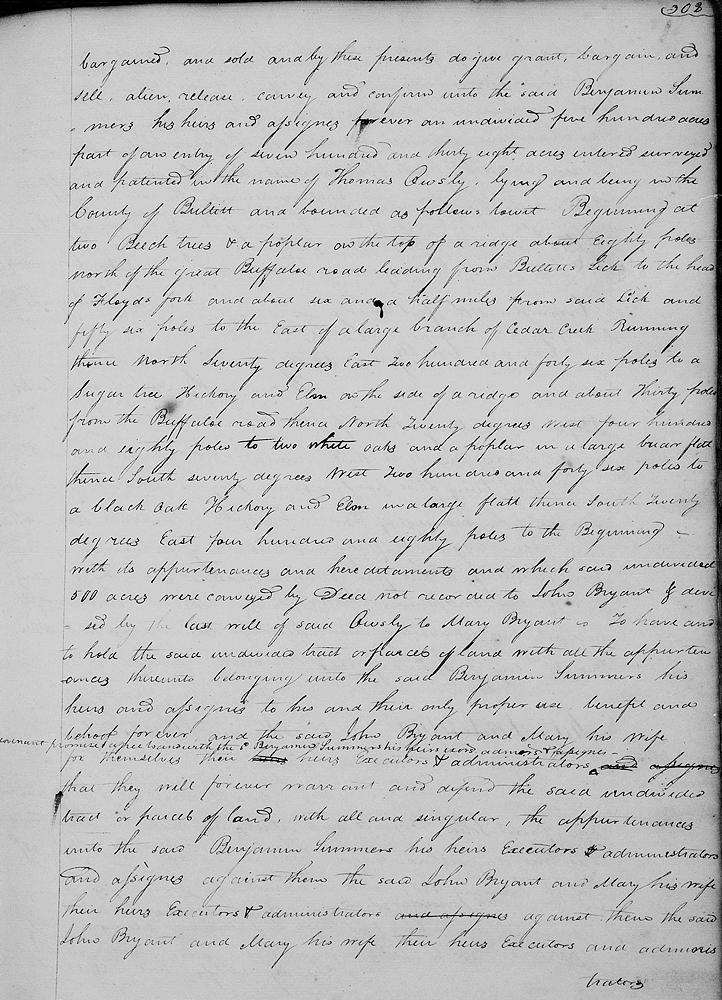 308
bargained, and sold and by these presents do give grant, bargain, and
sell, alien, release, convey and confirm unto the said Benjamin Sum
- mers his heirs and assignes forever an undivided five hundred acres
part of an entry of seven hundred and thirty eight acres entered surveyed
and patented in the name of Thomas Owsly, lying and being in the
County of Bullitt and bounded as follows towit Beginning at
two Beech trees & a poplar on the top of a ridge about Eighty poles
north of the great Buffaloe road leading from Bullitts Lick to the head
of Floyds fork and about six and a half miles from said Lick and
fifty six poles to the East of a large branch of Cedar Creek Running
thence North Seventy degrees East Two hundred and forty six poles to a
Sugar tree Hickory and Elm on the side of a ridge and about Thirty poles
from the Buffaloe road thence North Twenty degrees West four hundred
and eighty poles to two white oaks and a poplar in a large flatt
thence South seventy degrees West Two hundred and forty six poles to
a black Oak Hickory and Elm in a large flatt thence South Twenty
degrees East four hundred and eighty poles to the Beginning -
with its appurtenances and hereditaments and which said undivided
500 acres were conveyed by Deed not recorded to John Bryant & devi
- sed by the last will of said Owsly to Mary Bryant To have and
to hold the said undivided tract or parcel of land with all the appurten
ances thereunto belonging unto the said Benjamin Summers his
heirs and assignes to his and their only proper use benefit and
behoof forever and the said John Bryant and Mary his wife
covenant promise & agree to and with the sd Benjamin Summers his heirs admors & assignes -
for themselves their heirs Executors & administrators and assignes
that they will forever warrant and defend the said undivided
tract or parcel of land, with all and singular, the appurtenances
unto the said Benjamin Summers his heirs Executors & administrators
and assignes against them the said John Bryant and Mary his wife
their heirs Executors & administrators and assignes against them the said
John Bryant and Mary his wife their heirs Executors and adminis
trators